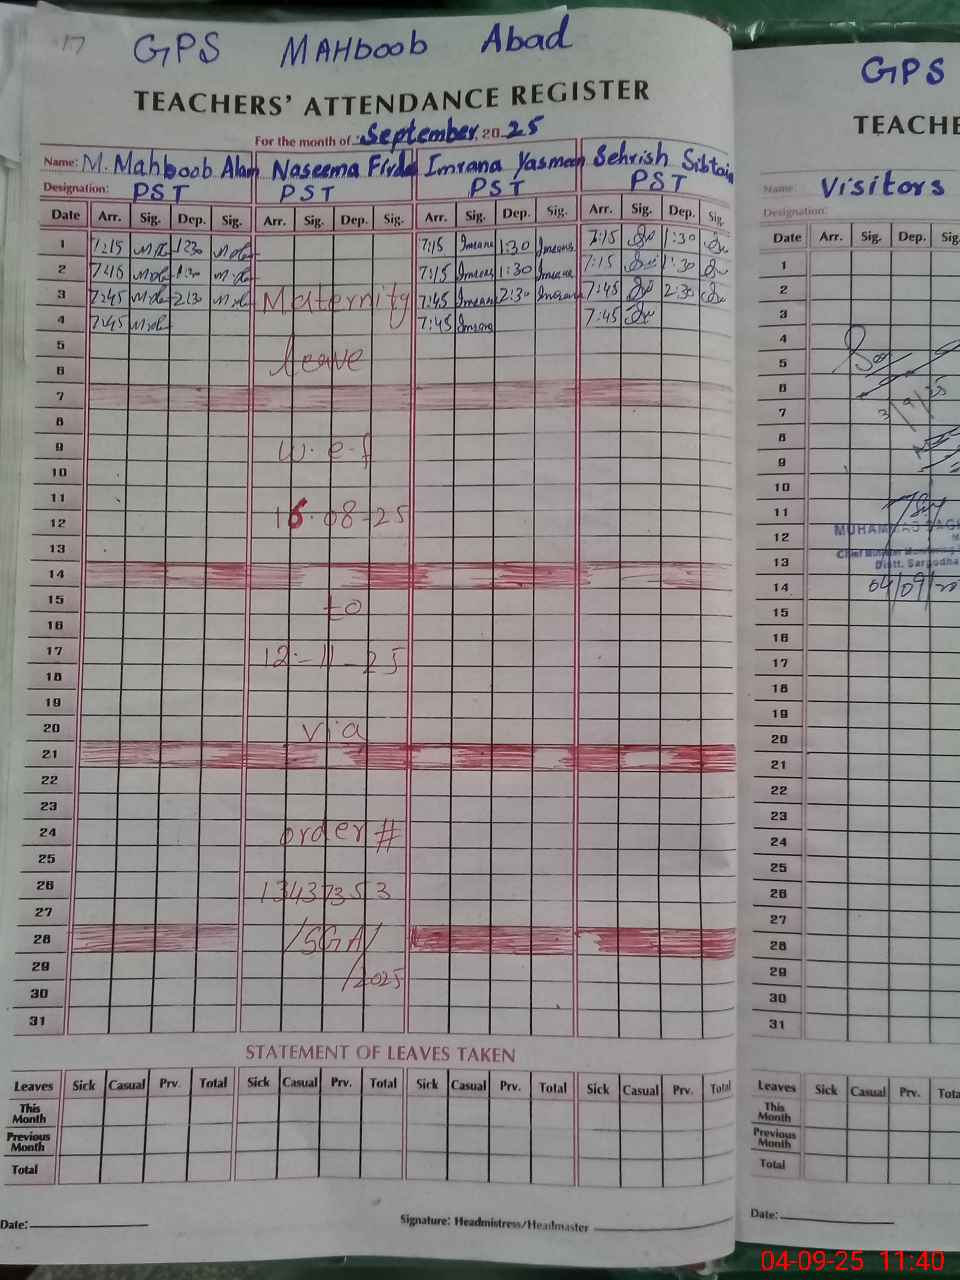 17
GPS MAHboob Abad
TEACHERS' ATTENDANCE REGISTER
For the month of September 2025
Name: M. Mahboob Alam Naseema Firda Imrana Yasmeen Sehrish Sibtain
Designation: PST PST PST PST
Date Arr. Sig. Dep. Sig. Arr. Sig. Dep. Sig. Arr. Sig. Dep. Sig. Arr. Sig. Dep. Sig.
1 7:15 1:30 7:15 Imrana 1:30 Imrana 7:15 1:30
2 7:15 Imrana 1:30 Imrana 7:15 1:30
3 7:45 2:30 Maternity 7:45 Imrana 2:30 Imrana 7:45 2:30
4 7:45 7:45 Imrana 7:45
5
6 leave
7
8
9 w.e.f
10
11
12 16.08-25
13
14
15 to
16
17 12-11-25
18
19
20 via
21
22
23
24 order #
25
26 13437353
27
28 /SGA/
29 /2025
30
31
STATEMENT OF LEAVES TAKEN
Leaves Sick Casual Prv. Total Sick Casual Prv. Total Sick Casual Prv. Total Sick Casual Prv. Total
This Month
Previous Month
Total
Date:
Signature: Headmistress/Headmaster
GPS
TEACHE
Name: Visitors
Designation:
Date Arr. Sig. Dep. Sig.
1
2
3
4
5
6
7 3/9/25
8
9
10
11
12 MUHAMMAD
13 Distt. Sargodha
14 04/09/20
15
16
17
18
19
20
21
22
23
24
25
26
27
28
29
30
31
Leaves Sick Casual Prv. Tota
This Month
Previous Month
Total
Date:
04-09-25 11:40